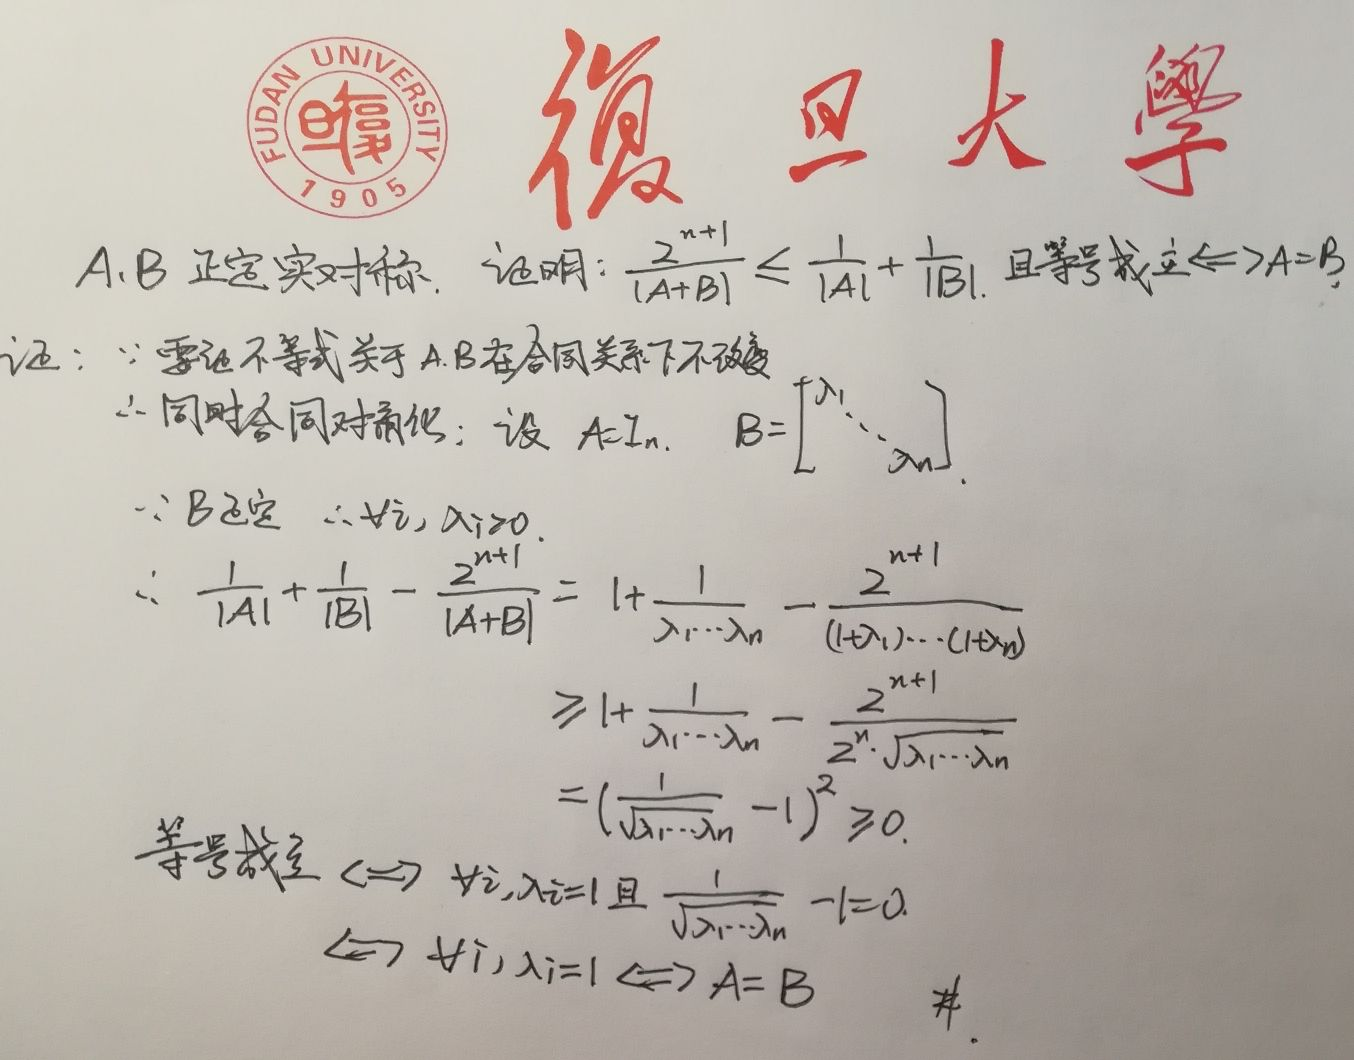 FUDAN UNIVERSITY
1905
復旦大學
A.B 正定实对称. 证明: \frac{2^{n+1}}{|A+B|} ≤ \frac{1}{|A|} + \frac{1}{|B|}. 且等号成立⇔A=B.
证: ∵ 要证不等式关于A.B在合同关系下不改变
∴ 同时合同对角化: 设 A=I_n. B=[λ_1 ⋱ λ_n].
∵ B正定 ∴∀i, λ_i>0.
∴ \frac{1}{|A|} + \frac{1}{|B|} - \frac{2^{n+1}}{|A+B|} = 1+\frac{1}{λ_1⋯λ_n} - \frac{2^{n+1}}{(1+λ_1)⋯(1+λ_n)}
≥ 1+\frac{1}{λ_1⋯λ_n} - \frac{2^{n+1}}{2^n·\sqrt{λ_1⋯λ_n}}
= (\frac{1}{\sqrt{λ_1⋯λ_n}} -1)^2 ≥0.
等号成立 ⇔ ∀i, λ_i=1 且 \frac{1}{\sqrt{λ_1⋯λ_n}} -1=0.
⇔ ∀i, λ_i=1 ⇔ A=B #.